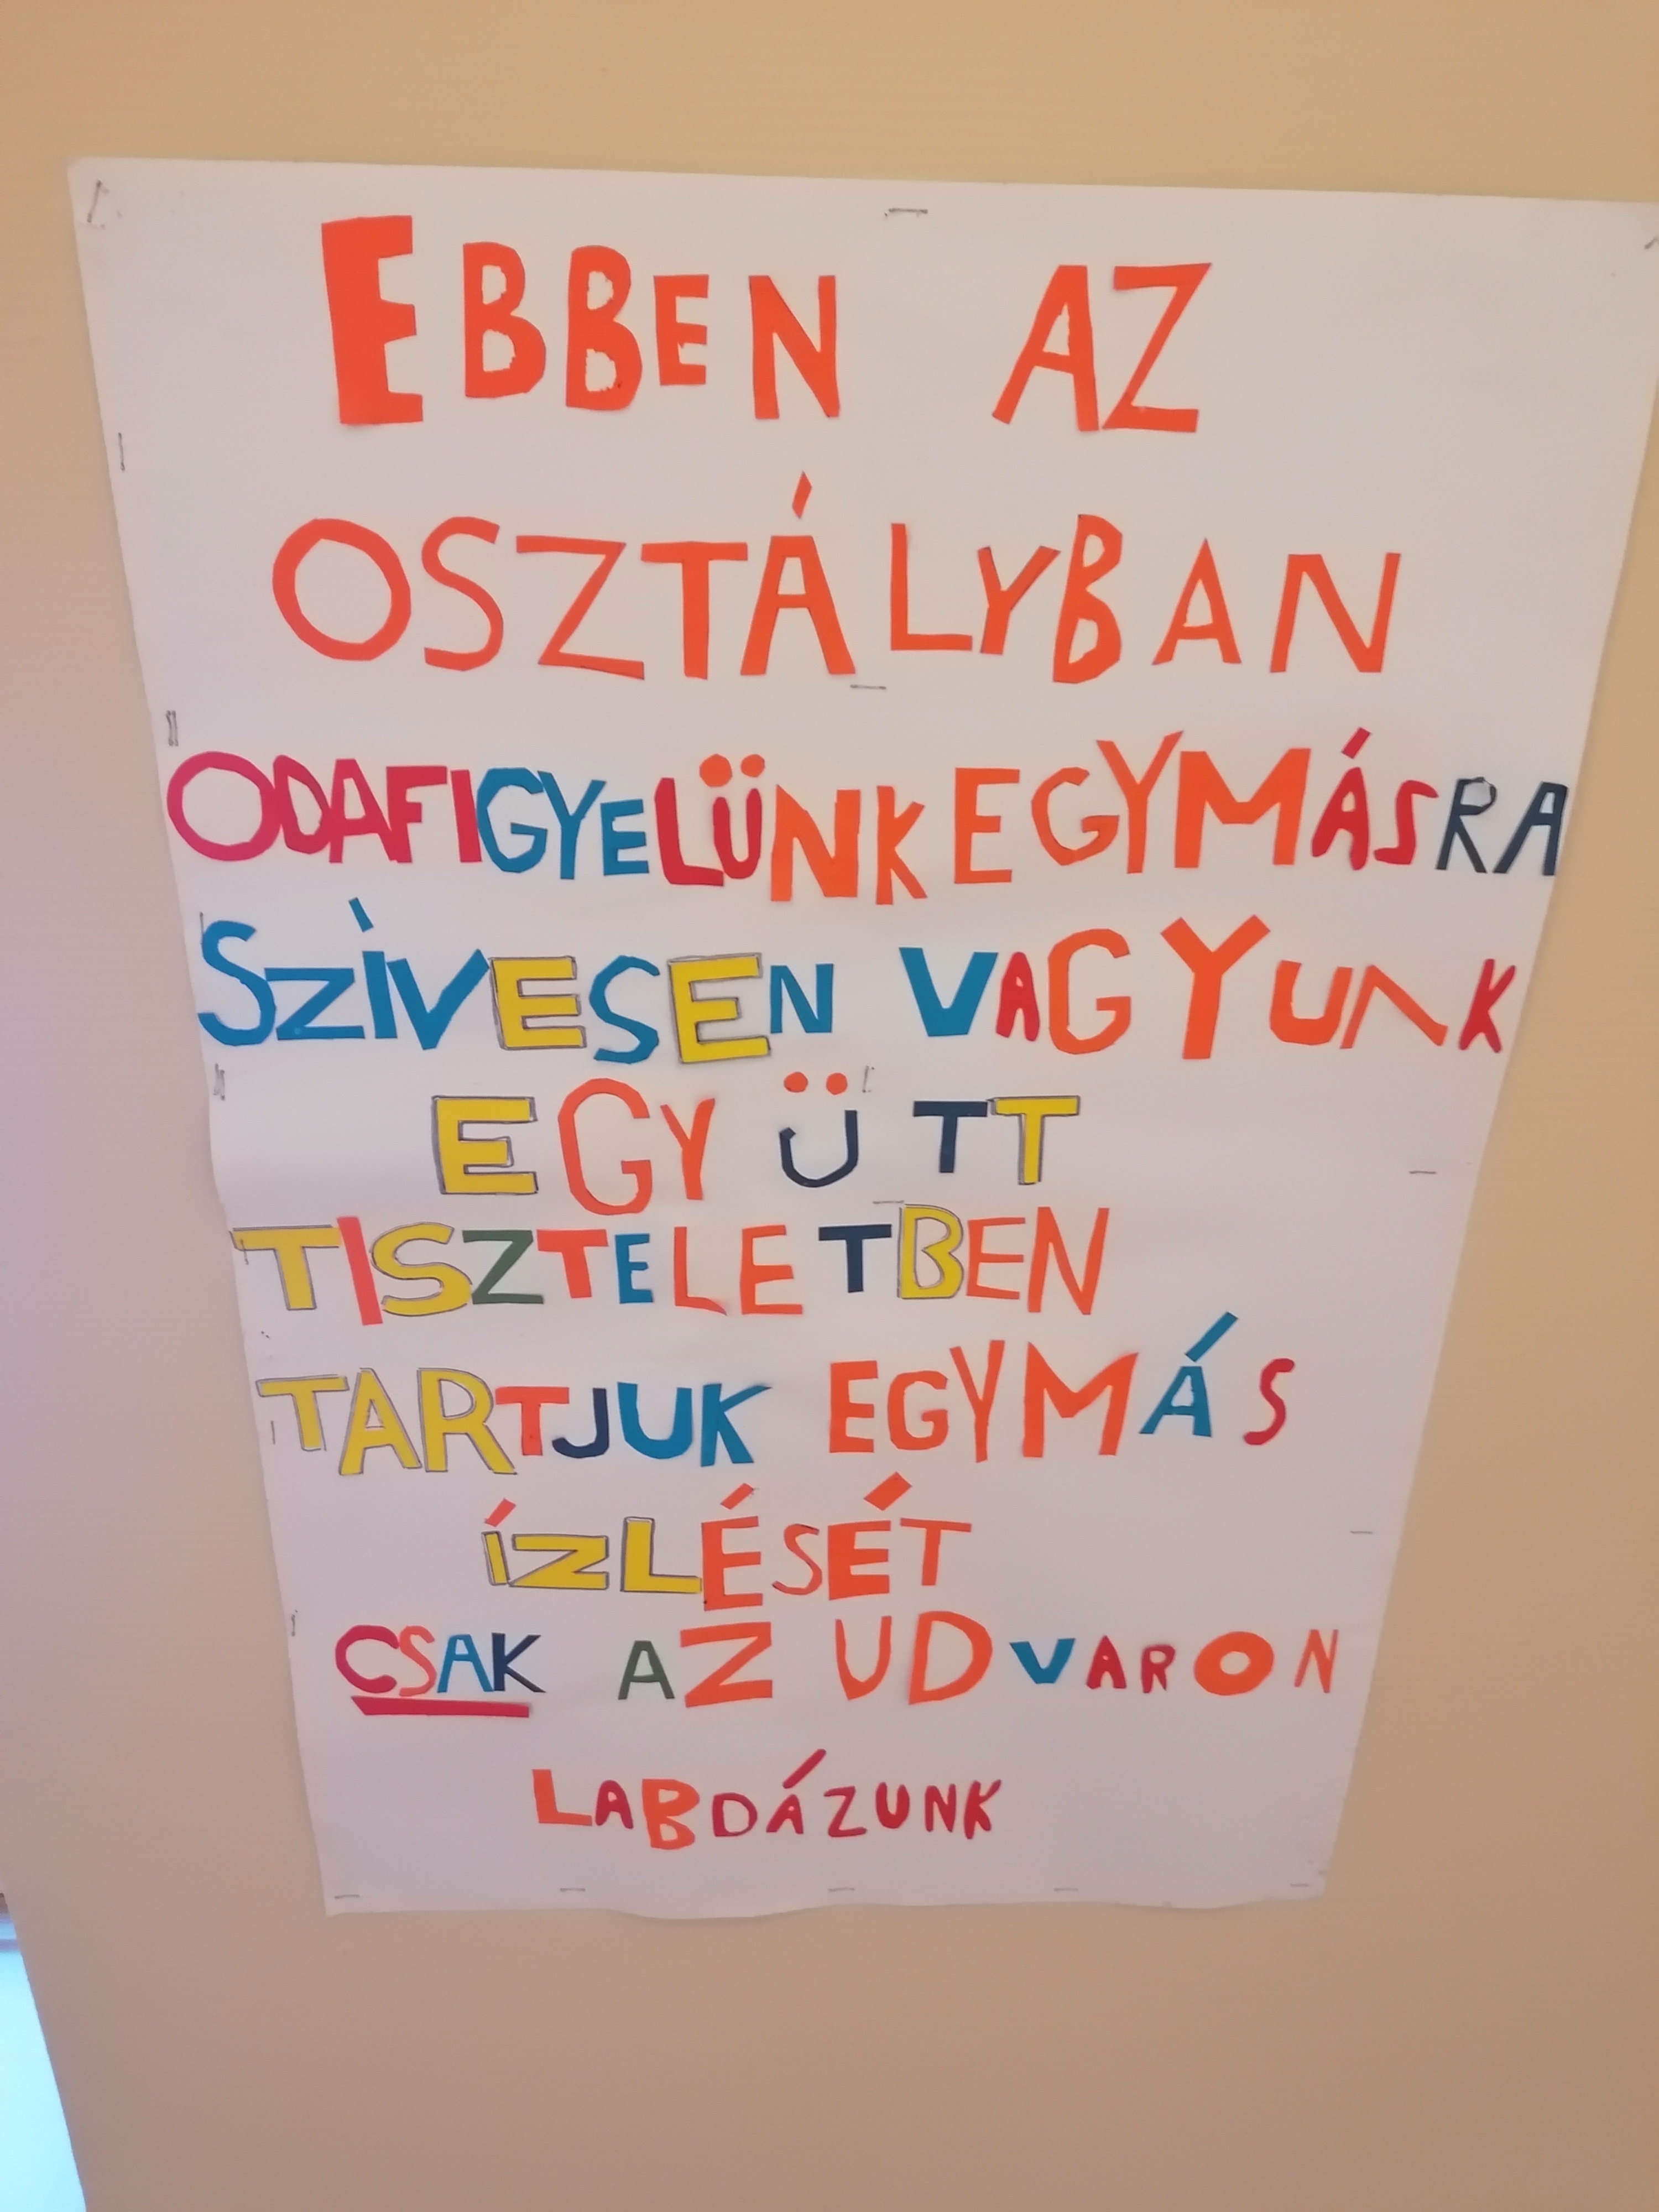 EBBEN AZ
OSZTÁLYBAN
ODAFIGYELÜNK EGYMÁSRA
SZÌVESEN VAGYUNK
EGYÜTT
TISZTELETBEN
TARTJUK EGYMÁS
ÍZLÉSÉT
CSAK AZ UDVARON
LABDÁZUNK